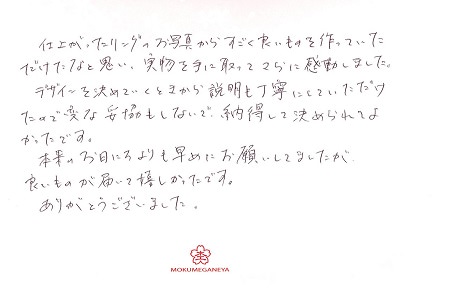 仕上がったリングのお写真からすごく良いものを作っていた
だけたなと思い、実物を手に取ってさらに感動しました。
デザインを決めていくときから説明も丁寧にしていただけ
たので変な妥協もしないで、納得して決められてよ
かったです。
本来のお日にちよりも早めにお願いしてましたが
良いものが届いて嬉しかったです。
ありがとうございました。
MOKUMEGANEYA